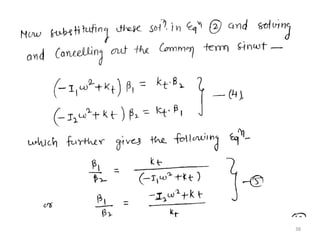 Now substituting these solⁿ. in Eqⁿ ② and solving
and Cancelling out the Common term sinωt —
(-I₁ω² + kt) β₁ = kt·β₂
(-I₂ω² + kt) β₂ = kt·β₁ } — (4)
which further gives the following Eqⁿ—
β₁/β₂ = kt/(-I₁ω² + kt)
or β₁/β₂ = -I₂ω² + kt/kt } — ⑤
38